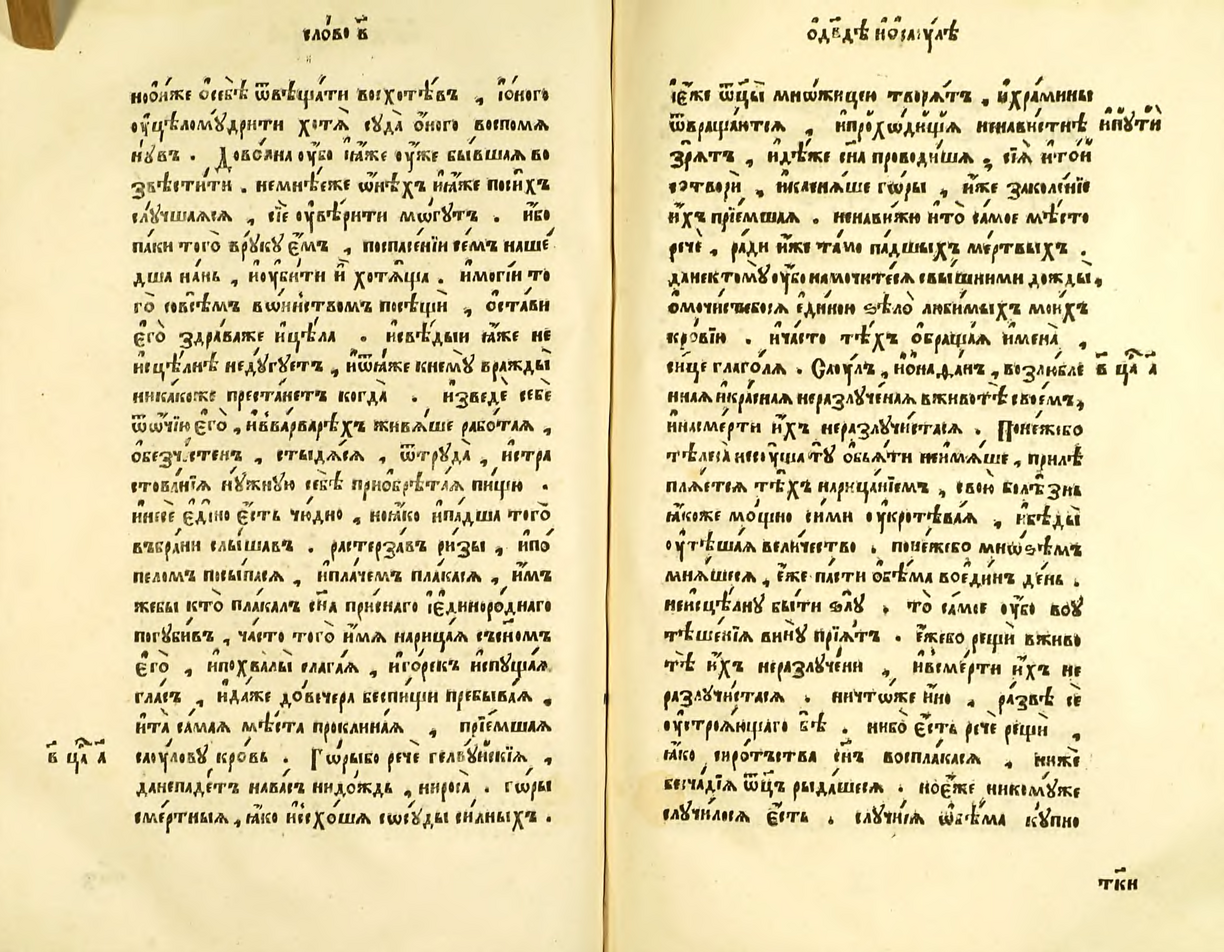 сло́во в҃
но онѝже ѡ҆себѣ̀ ѿвѣща́ти восхотѣ́въ , і҆о́ного
оу҆цѣлому́дрити хотѧ̀ сꙋда̀ о҆́ного воспомѧ
нꙋ́въ . Дово́лна оу҆́бо ꙗ҆́же оу҆жѐ бы́вшаѧ во
звѣсти́ти . немнѣ́еже ѡ҆нѣ́хъ и҆ꙗ҆́же поси́хъ
слꙋчи́шаѧсѧ , сїѐ оу҆вѣ́рити мо́гꙋтъ . и҆́бо
па́ки того̀ врꙋ́кꙋ є҆́мъ , поспасе́нїи се́мъ наше́
дша на́нь , и҆оу҆би́ти и҆̀ хотѧ́ща . и҆мо́гїи то
го̀ совсѣ́мъ во́инствомъ посѣщѝ , ѡ҆ста́ви
є҆го̀ здра́важе и҆цѣ́ла . и҆свѣ́дыи ꙗ҆́же не
и҆сцѣ́лнѣ недꙋ́гꙋетъ , и҆ѿꙗ҆́же кнемꙋ̀ вражды̀
ника́коже преста́нетъ когда̀ . и҆зведѐ себѐ
ѿѻ҆чїю̀ є҆гѡ̀ , и҆вва́рварѣхъ живѧ́ше рабо́таѧ ,
ѡ҆безче́стенъ , стыдѧ́сѧ , ѿтрꙋда̀ , и҆стра
стова́нїѧ нꙋ́жнꙋю себѣ̀ приѡбрѣта́ѧ пи́щꙋ .
и҆несѐ є҆ди́но є҆́сть чю́дно , но ꙗ҆́ко и҆па́дша того̀
въбра́ни слы́шавъ . растерза́въ ри́зы , и҆по́
пеломъ посы́пасѧ , и҆пла́чемъ пла́касѧ , и҆́мъ
жебы кто̀ пла́калъ сн҃а при́снаго і҆є҆диноро́днаго
погꙋби́въ , ча́сто того̀ и҆́мѧ нарица́ѧ съсн҃омъ
є҆го̀ , и҆похвалы̀ слага́ѧ , и҆го́рекъ и҆спꙋща́ѧ
гла́съ , и҆да́же дове́чера беспи́щи пребыва́ѧ ,
и҆та̀ са́маѧ мѣста̀ проклина́ѧ , прїе́мшаѧ
саоу́ловꙋ кро́вь . Го́рыбо речѐ гелвꙋ́йскїѧ ,
данепаде́тъ нава́съ нидо́ждь , нироса̀ . го́ры
сме́ртныѧ , ꙗ҆́ко и҆зсхо́шѧ сосꙋ́ды си́лныхъ .
в҃ цр҃ а҃
ѡ҆ дв҃дѣ и҆ ѡ҆ саꙋ́лѣ
і҆є҆́же ѿцы̀ мно́жицею творѧ́тъ , и҆хра́мины
ѿвраща́ютсѧ , и҆прохо́дищиѧ нена́вистнѣ и҆пꙋти̑
зрѧ́тъ , и҆дѣ́же сн҃а проводи́шѧ , сїѧ̀ и҆то́й
сотворѝ , и҆кленѧ́ше го́ры , и҆́же заколе́нїе
и҆́хъ прїе́мшаѧ . ненави́жꙋ и҆то̀ са́мое мѣ́сто
речѐ , ра́ди и҆́же та́мо па́дшыхъ ме́ртвыхъ .
данектомꙋ̀ оу҆́бо намочи́теся свы́шними дожды̀ ,
ѡ҆мочи́стебосѧ є҆ди́ною ѕѣлѡ̀ люби́мыхъ мои́хъ
кро́вїю . и҆ча́сто тѣ́хъ ѡ҆браща́ѧ и҆мена̀ ,
си́це глаго́лѧ . Саоу́лъ , и҆ і҆ѡнаѳа́нъ , возлю́бле
в҃ цр҃ а҃
ннаѧ и҆кра́снаѧ неразлꙋ́ченаѧ вживотѣ̀ свое́мъ ,
и҆насме́рти и҆́хъ неразлꙋчи́стасѧ . Поне́жебо
тѣлеса̀ несꙋ́ща тꙋ̀ ѡ҆б̾ѧ́ти неи҆мѧ́ше , прилѣ
плѧ́етсѧ тѣ́хъ нарица́нїемъ , свою̀ болѣ́знь
ꙗ҆́коже мо́щно си́ми оу҆кротѣва́ѧ , и҆бѣды̀
оу҆тѣша́ѧ вели́чество . поне́жебо мно́зѣмъ
мнѧ́шесѧ , є҆́же па́сти ѻ҆бѣ́ма воеди́нъ де́нь .
неи҆сцѣ́лнꙋ бы́ти ѕлꙋ̀ , то̀ са́мое оу҆́бо воу҆
тѣше́нїѧ винꙋ̀ прїѧ́тъ . є҆́жебо рещѝ вживо
тѣ̀ и҆́хъ неразлꙋче́ни , и҆всме́рти и҆́хъ не
разлꙋчи́стасѧ . ничто́же и҆́но , ра́звѣ сѐ
оу҆строѧ́ющаго бѣ̀ . ни́бо є҆́сть речѐ рещѝ ,
ꙗ҆́ко сиро́тства сн҃ъ воспла́касѧ , ни́же
безча́дїѧ ѿц҃ъ рыда́шесѧ . но є҆́же никомꙋ́же
слꙋчи́лосѧ є҆́сть . слꙋчи́сѧ ѻ҆бѣ́ма кꙋ́пно
тк҃и